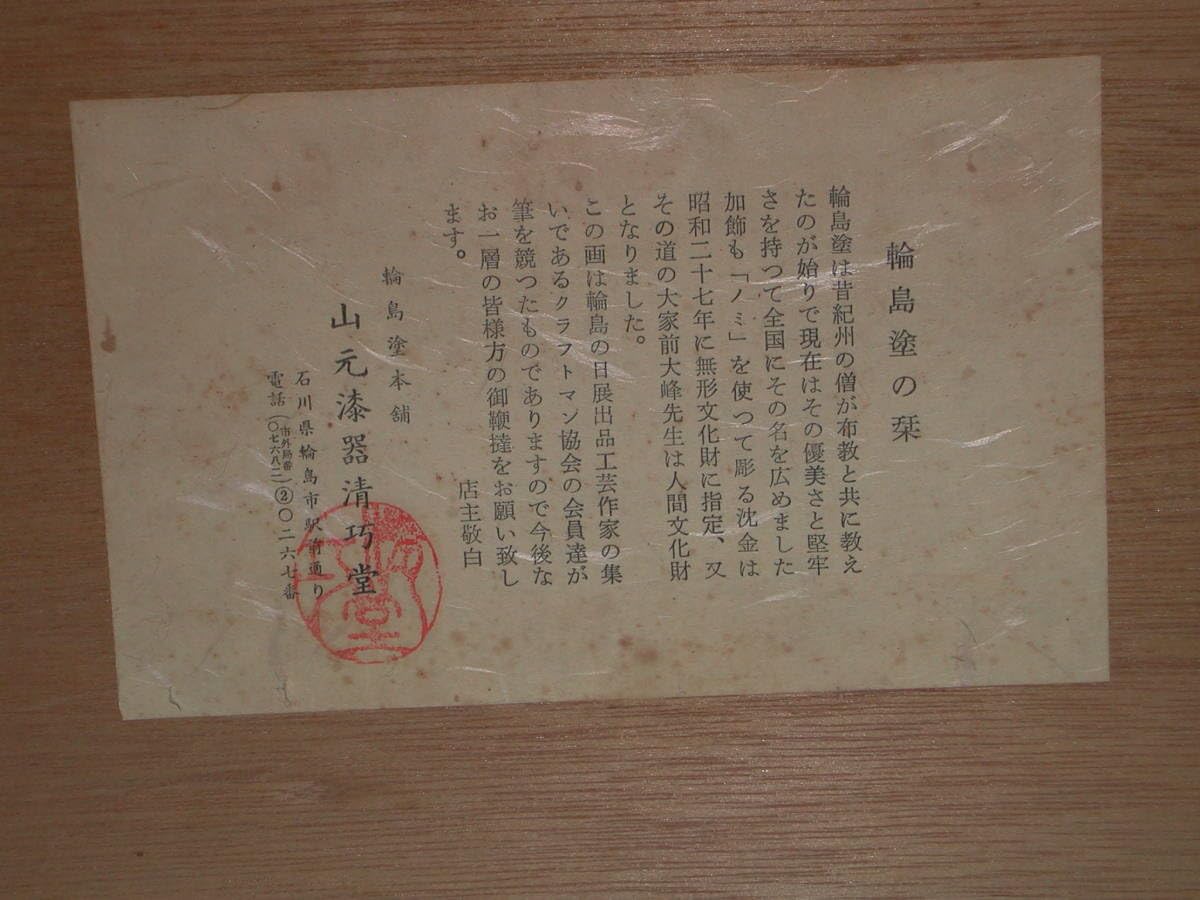 輪島塗の栞
輪島塗は昔紀州の僧が布教と共に教え
たのが始りで現在はその優美さと堅牢
さを持つて全国にその名を広めました
加飾も「ノミ」を使つて彫る沈金は
昭和二十七年に無形文化財に指定、又
その道の大家前大峰先生は人間文化財
となりました。
この画は輪島の日展出品工芸作家の集
いであるクラフトマン協会の会員達が
筆を競つたものでありますので今後な
お一層の皆様方の御鞭撻をお願い致し
ます。
店主敬白
輪島塗本舗
山元漆器清巧堂
石川県輪島市駅前通り
電話(市外局番〇七六八二)②〇二六七番
堂